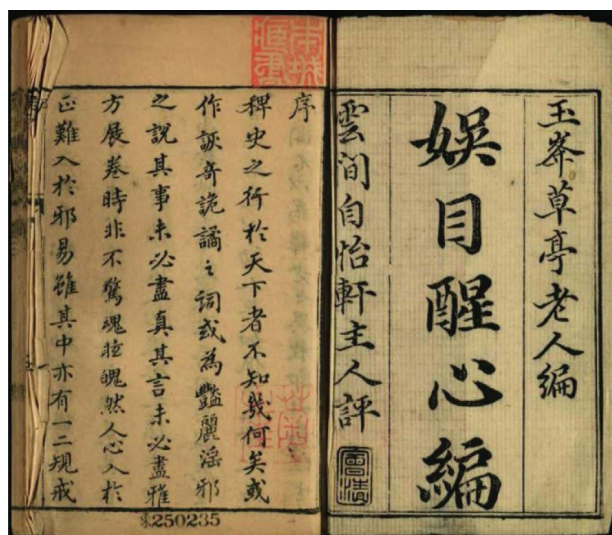 玉峯草亭老人編
娯目醒心編
雲間自怡軒主人評
序
稗史之行於天下者不知幾何矣或
作詼奇詭譎之詞或為豔麗淫邪
之說其事未必盡真其言未必盡雅
方展卷時非不驚魂眩魄然人心入於
正難入於邪易雖其中亦有一二規戒
250235